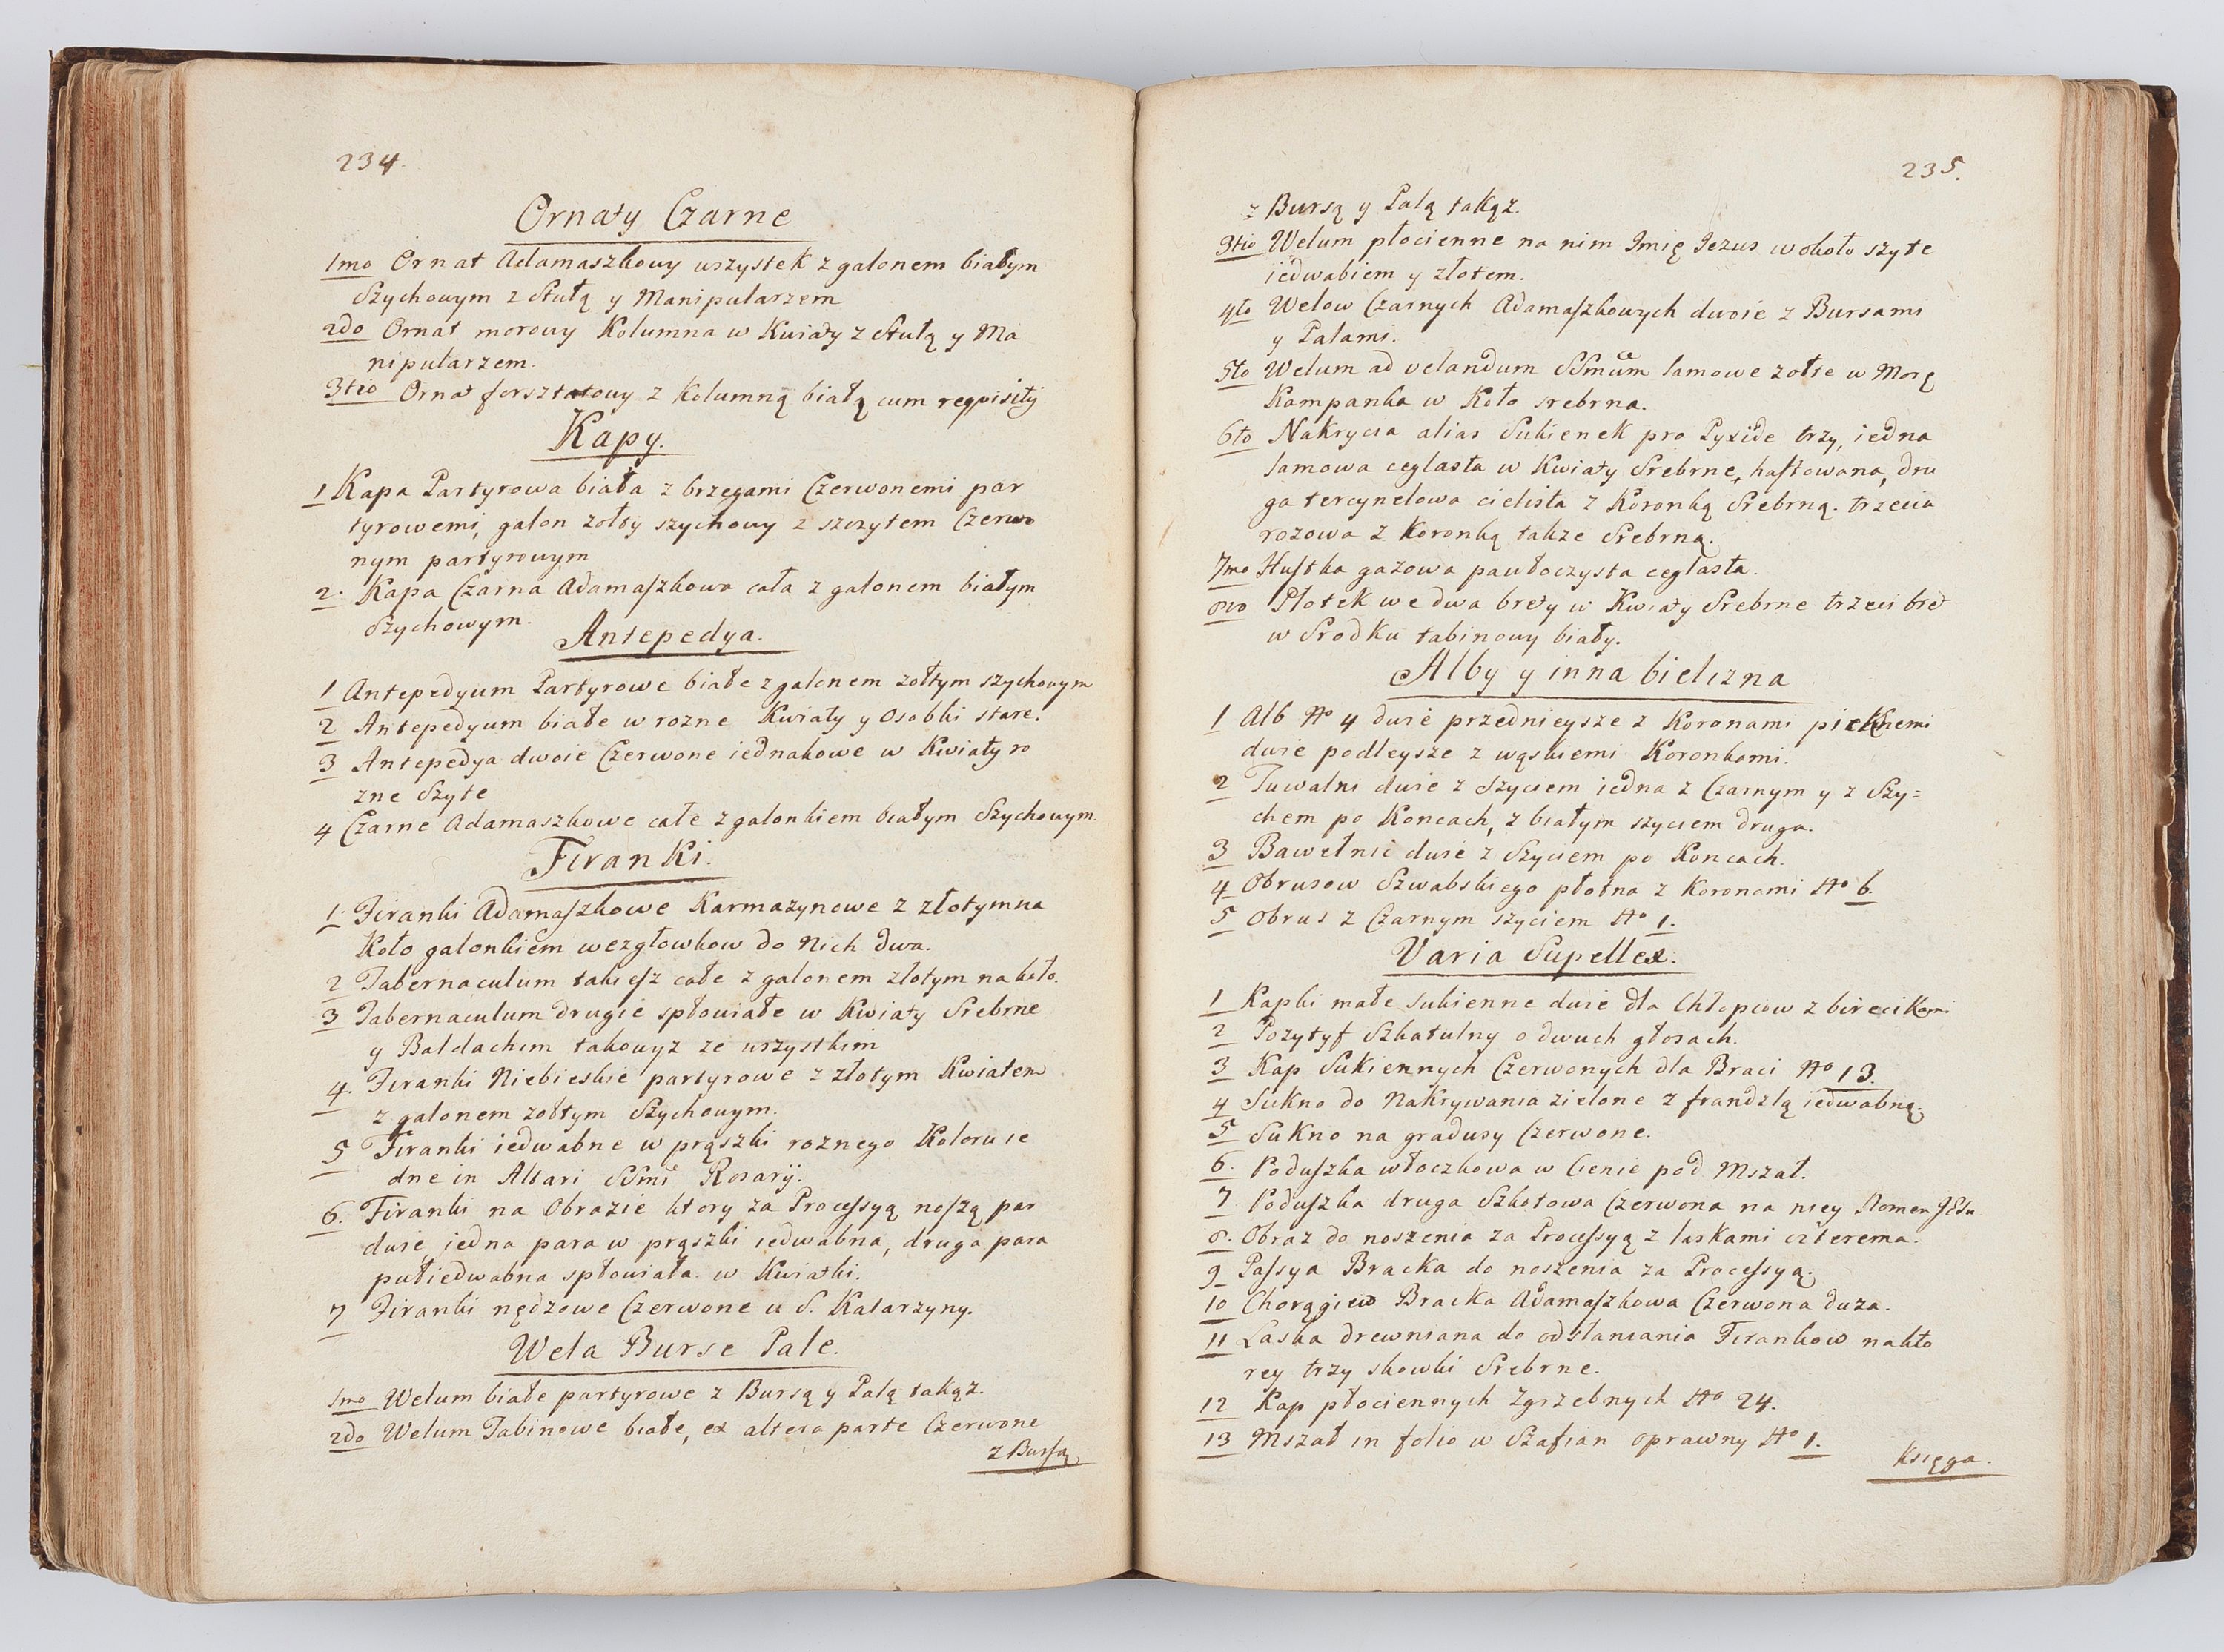 234.
Ornaty Czarne
1mo Ornat Adamaszkowy wszystek z galonem białym
Szychowym z Stułą y Manipularzem
2do Ornat morowy Kolumna w Kwiaty z Stułą y Ma
nipularzem.
3tio Ornat forsztatowy z Kolumną białą cum reqvisitij
Kapy.
1 Kapa Partyrowa biała z brzegami Czerwonemi par
tyrowemi, galon zołty szychowy z szczytem Czerwo
nym partyrowym
2. Kapa Czarna Adamaſzkowa cała z galonem białym
Szychowym.
Antepedya.
1 Antepedyum Partyrowe białe z galonem zołtym szychowym
2 Antepedyum białe w rozne Kwiaty y Osobki stare.
3 Antepedya dwoie Czerwone iednakowe w Kwiaty ro
zne Szyte
4 Czarne Adamaszkowe całe z galonkiem białym Szychowym.
Firanki.
1. Firanki Adamaſzkowe Karmazynowe z złotym na
Koło galonkiem wezgłowkow do Nich dwa.
2 Tabernaculum takieſz całe z galonem złotym na koło.
3 Tabernaculum drugie spłowiałe w Kwiaty Srebrne
y Baldachim takowyz ze wszystkim
4. Firanki Niebieskie partyrowe z złotym Kwiatem
z galonem zołtym Szychowym.
5 Firanki iedwabne w prąszki roznego Koloru ie
dne in Altari SSmi Rosarij.
6. Firanki na Obrazie ktory za Proceſsyą noſzą par
dwie, iedna para w prąszki iedwabna, druga para
pułiedwabna spłowiała w Kwiatki.
7 Firanki nędzowe Czerwone u S. Katarzyny.
Wela Burse Pale.
1mo Welum białe partyrowe z Bursą y Palą takąz.
2do Welum Tabinowe białe, ex altera parte Czerwone
z Burſą
235.
z Bursą y Palą takąz.
3tio Welum płocienne na nim Imię Iezus w około szyte
iedwabiem y złotem.
4to Welow Czarnych Adamaſzkowych dwoie z Bursami
y Palami.
5to Welum ad velandum SSmum lamowe zołte w Morę
Kampanka w Koło srebrna.
6to Nakrycia alias Sukienek pro Pyxide trzy, iedna
lamowa ceglasta w Kwiaty Srebrne, haftowana, dru
ga tercynelowa cielista z Koronką Srebrną. trzecia
rozowa z Koronką takze Srebrną.
7mo Huſtka gazowa pawłoczysta ceglasta.
8vo Płotek we dwa brety w Kwiaty Srebrne trzeci bret
w Srodku tabinowy biały.
Alby y inna bielizna
1 Alb No 4 dwie przednieysze z Koronami pieknemi
dwie podleysze z wąskiemi Koronkami.
2 Tuwalni dwie z Szyciem iedna z Czarnym y z Szy=
chem po Koncach, z białym szyciem druga.
3 Bawełnic dwie z Szyciem po Koncach.
4 Obrusow Szwabskiego płotna z Koronami No 6.
5 Obrus z Czarnym szyciem No 1.
Varia Supellex.
1 Kapki małe sukienne dwie dla Chłopcow z birecikami
2 Pozytyf Szkatulny o dwuch głosach.
3 Kap Sukiennych Czerwonych dla Braci No 13.
4 Sukno do Nakrywania zielone z frandzlą iedwabną.
5 Sukno na gradusy Czerwone.
6. Poduſzka włoczkowa w Cenie pod Mszał.
7 Poduſzka druga Szkotowa Czerwona na niey Nomen JEsu
8. Obraz do noszenia za Proceſsyą z laskami czterema.
9 Paſsya Bracka do noszenia za Proceſsyą.
10 Chorągiew Bracka Adamaſzkowa Czerwona duza.
11 Laska drewniana do odsłaniania Firankow na kto
rey trzy skowki Srebrne.
12 Kap płociennych Zgrzebnych No 24.
13 Mszał in folio w Szafian oprawny No 1.
Księga.